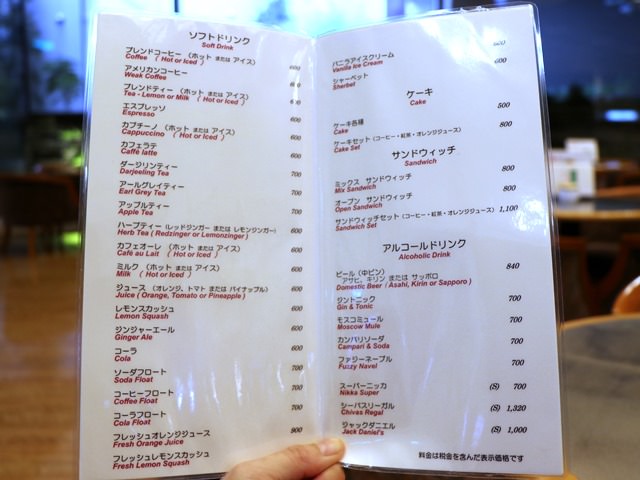 ソフトドリンク
Soft Drink
ブレンドコーヒー （ホット または アイス）
Coffee （ Hot or Iced ） 600
アメリカンコーヒー
Weak Coffee 600
ブレンドティー （ホット または アイス）
Tea - Lemon or Milk （ Hot or Iced ） 600
エスプレッソ
Espresso 600
カプチーノ （ホット または アイス）
Cappuccino （ Hot or Iced ） 600
カフェラテ
Caffé latte 600
ダージリンティー
Darjeeling Tea 700
アールグレイティー
Earl Grey Tea 700
アップルティー
Apple Tea 700
ハーブティー （レッドジンガー または レモンジンガー）
Herb Tea ( Redzinger or Lemonzinger ) 600
カフェオーレ （ホット または アイス）
Café au Lait （ Hot or Iced ） 600
ミルク （ホット または アイス）
Milk （ Hot or Iced ） 600
ジュース （オレンジ、トマト または パイナップル）
Juice ( Orange, Tomato or Pineapple ) 600
レモンスカッシュ
Lemon Squash 600
ジンジャーエール
Ginger Ale 600
コーラ
Cola 600
ソーダフロート
Soda Float 700
コーヒーフロート
Coffee Float 700
コーラフロート
Cola Float 700
フレッシュオレンジジュース
Fresh Orange Juice 900
フレッシュレモンスカッシュ
Fresh Lemon Squash
バニラアイスクリーム
Vanilla Ice Cream 600
シャーベット
Sherbet
ケーキ
Cake
ケーキ各種 500
Cake
ケーキセット （コーヒー・紅茶・オレンジジュース） 800
Cake Set
サンドウィッチ
Sandwich
ミックス サンドウィッチ 800
Mix Sandwich
オープン サンドウィッチ 800
Open Sandwich
サンドウィッチセット （コーヒー・紅茶・オレンジジュース） 1,100
Sandwich Set
アルコールドリンク
Alcoholic Drink
ビール （中ビン） 840
アサヒ、キリン または サッポロ
Domestic Beer ( Asahi, Kirin or Sapporo )
ジントニック 700
Gin & Tonic
モスコミュール 700
Moscow Mule
カンパリソーダ 700
Campari & Soda
ファジーネーブル 700
Fuzzy Navel
スーパーニッカ (S) 700
Nikka Super
シーバスリーガル (S) 1,320
Chivas Regal
ジャックダニエル (S) 1,000
Jack Daniel's
料金は税金を含んだ表示価格です